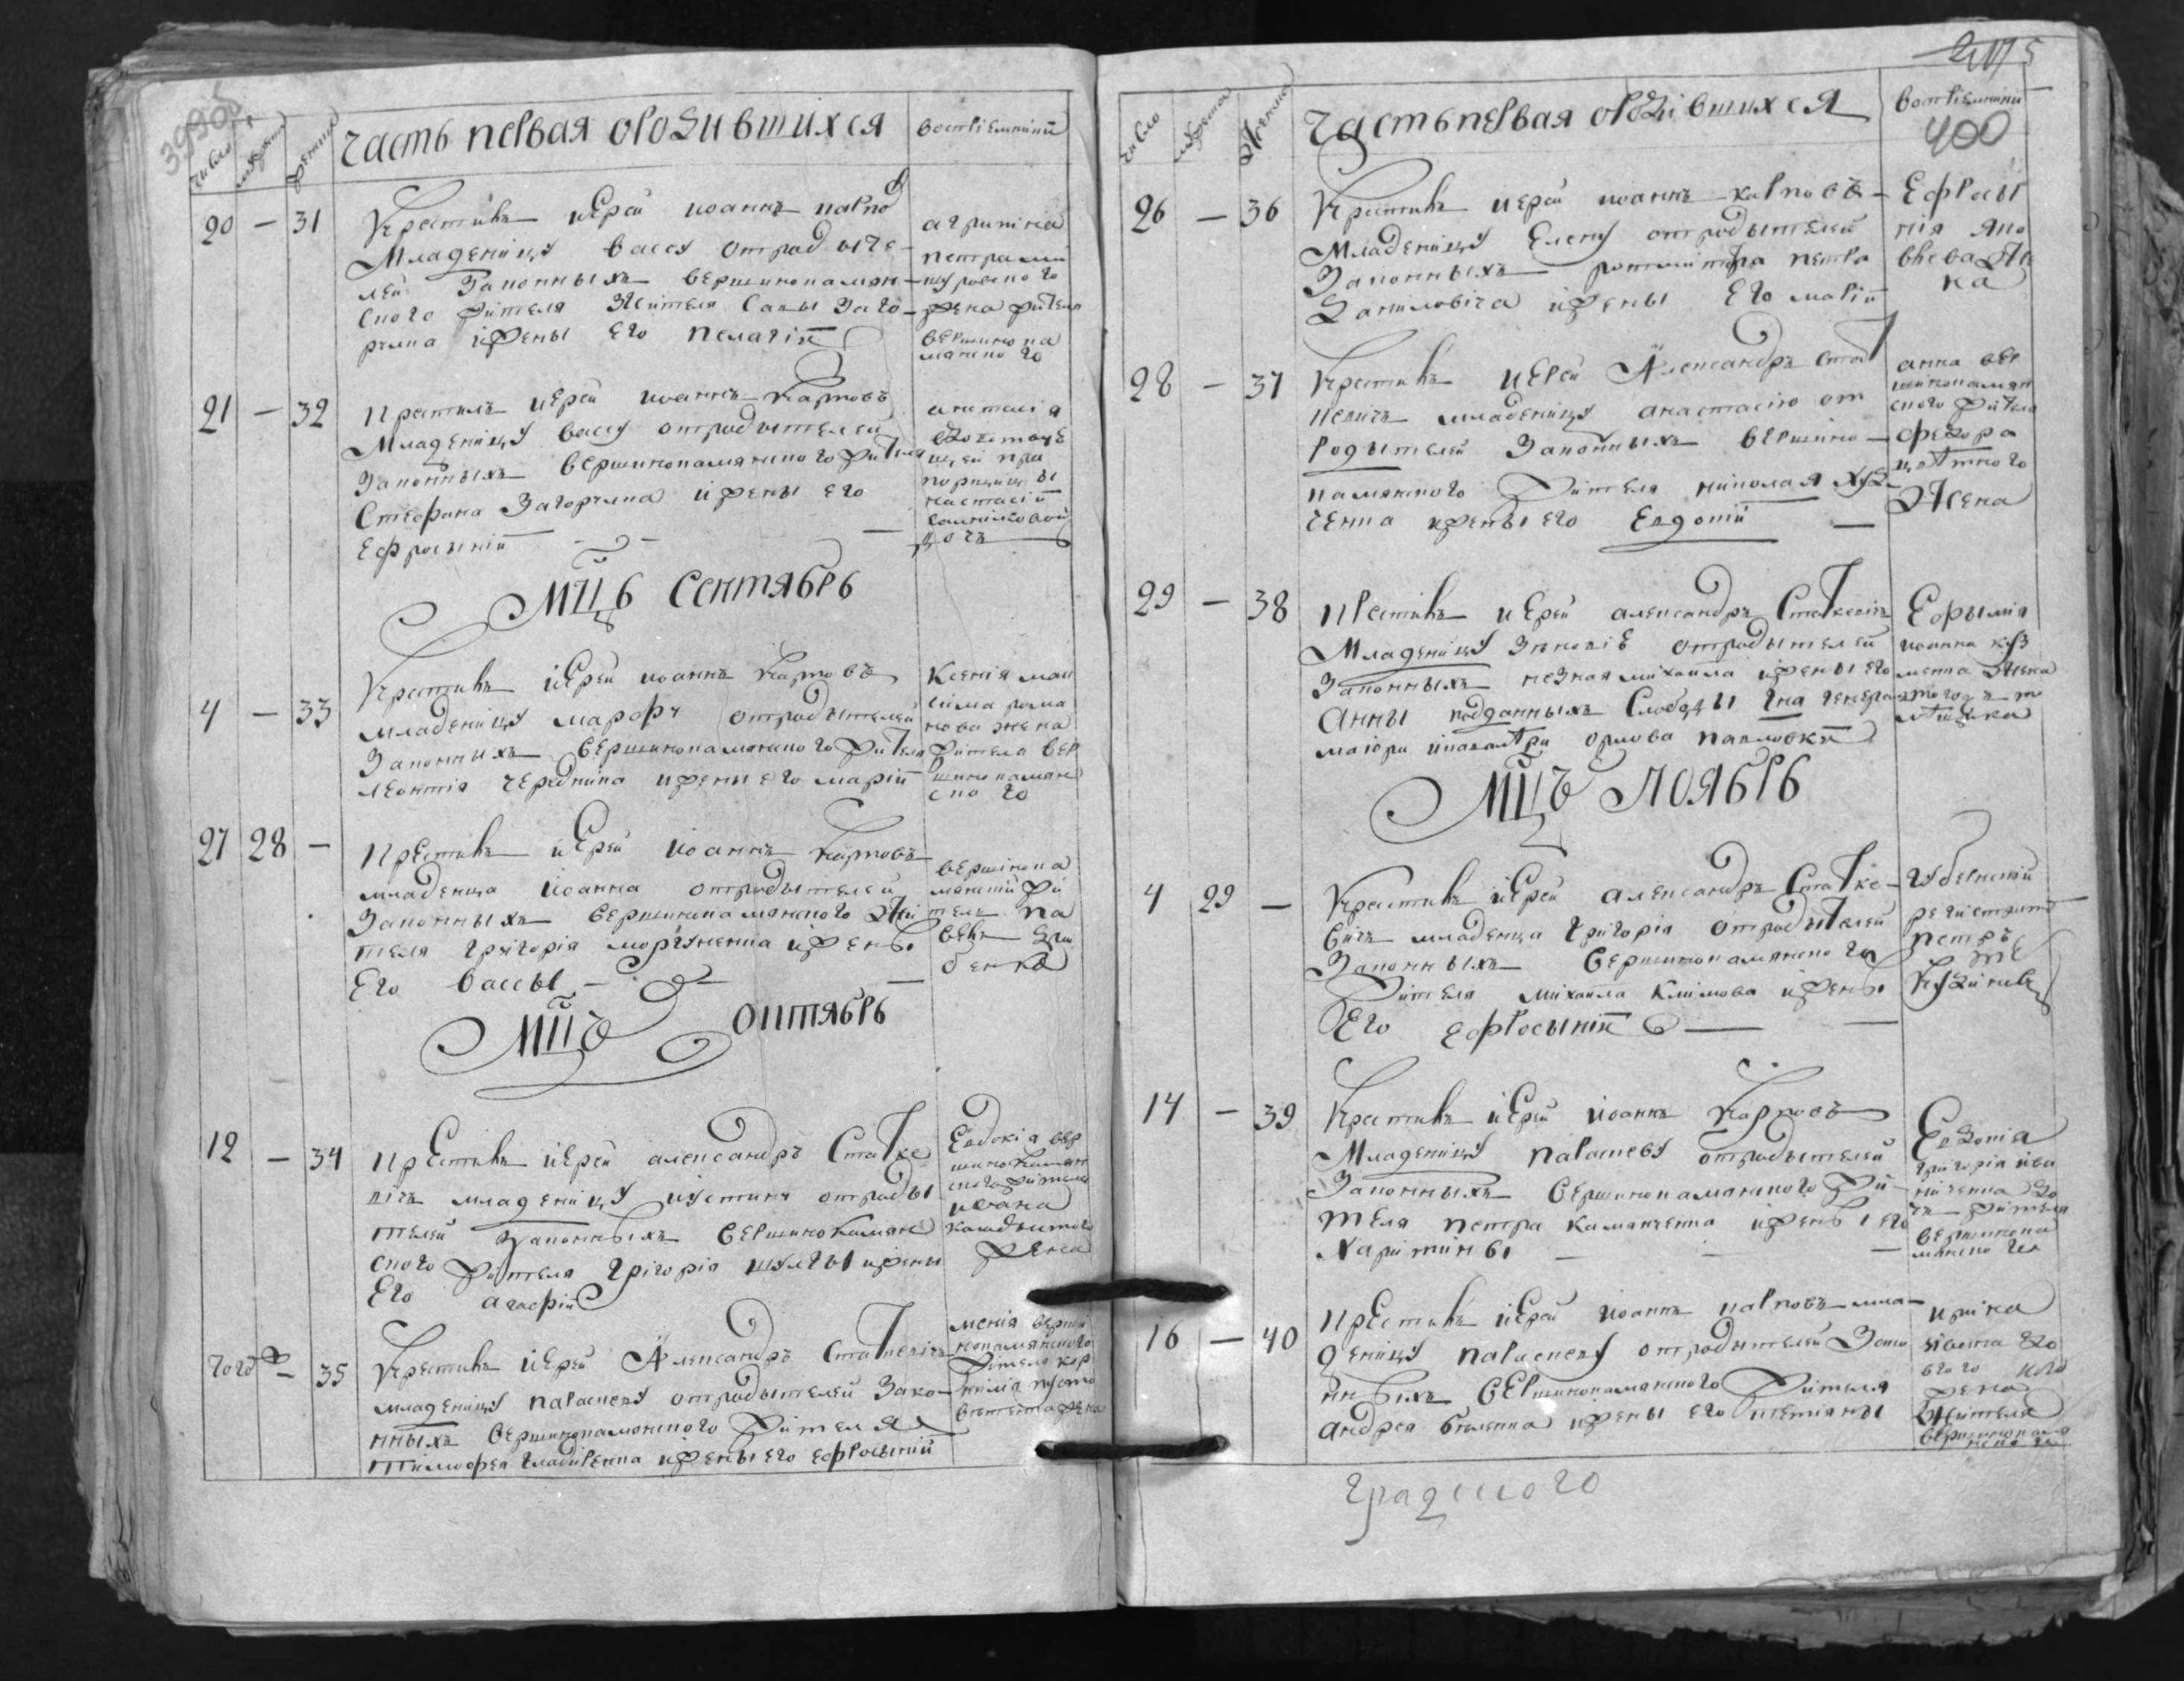 число мужеска женска
часть первая ородившихся
востріемники
20 — 31
Крестилъ иерей иоаннъ карпов
Младеницу вассу отродыте-
лей Законныхъ вершинокамян-
ского жителя Савы Заго-
рулка ижены его пелагіи
агрипина
петра
жена жителя
вершинока
мянского
21 — 32
крестилъ иерей иоаннъ Карповъ
Младеницу вассу отродытелей
Законныхъ вершинокамянского жителя
Стефана Загорулка ижены его
Ефросыніи
настасіи
дочь
Мцъ Сентябрь
4 — 33
Крестилъ иерей иоаннъ Карповъ
младеницу марфу отродытелей
Законныхъ вершинокамянского жителя
леонтія чередника ижены его маріи
Ксенія мак
сима рома
нова жена
жителя вер
шинокамян
ского
27 28 —
крестилъ иерей иоаннъ Карповъ
младенца иоанна отродытелей
Законныхъ вершинокамянского жи
теля григорія моргуненка ижены
Его вассы
вершинока
мянскій жи
тель па
велъ
Мцъ октябрь
12 — 34
крестилъ иерей александръ Статке
вичъ младеницу иустину отроды
телей законныхъ вершинокамян
ского жителя григорія шулгы ижены
Его агафіи
Евдокія вер
шинокамян
ского жителя
ивана
жена
тогож — 35
Крестилъ иерей Александръ Статкевичъ
младеницу параскеву отродытелей Зако-
нныхъ вершинокамянского жителя
тимофея гладиренка ижены его ефросыніи
верши
нокамянского
жителя кор
нилія пусто
жена
2175
число мужеска женска
часть первая ородившихся
востріемники
400
26 — 36
Крестилъ иерей иоаннъ карповъ
Младеницу Елену отродытелей
Законныхъ ротмистра петра
Даниловича ижены Его маріи
Ефросы
нія яко
влева
28 — 37
Крестилъ иерей Александръ Стат
кевичъ младеницу анастасію от
родытелей Законныхъ вершино-
камянского жителя николая
ченка ижены его Евдокіи
анна вер
шинокамян
ского жителя
федора
жена
29 — 38
крестилъ иерей александръ Статкевичъ
Младеницу Зиновіе отродытелей
Законныхъ незная михаила ижены его
Анны подданныхъ Слободы Гна генерал
маіора икавалера орлова павловки
Ефымія
иоанна куз
менка жена
Мцъ ноябрь
4 29 —
Крестилъ иерей александръ Статке-
вичъ младенца григорія отродытелей
Законныхъ вершинокамянского
жителя михаила климова ижены
Его ефросыніи
Губернскій
регистрат
петръ
14 — 39
Крестилъ иерей иоаннъ Карповъ
Младеницу параскеву отродытелей
Законныхъ вершинокамянского жи-
теля петра каманченка ижены его
Харитины
Евдокія
григорія ива
ниченка до
чь жителя
вершинока
мянского
16 — 40
крестилъ иерей иоаннъ карповъ мла-
деницу параскеву отродытелей Зако
нныхъ вершинокамянского жителя
андрея беленка ижены его тетіяны
ирина
жена
жителя
вершинокамя
нского
градского